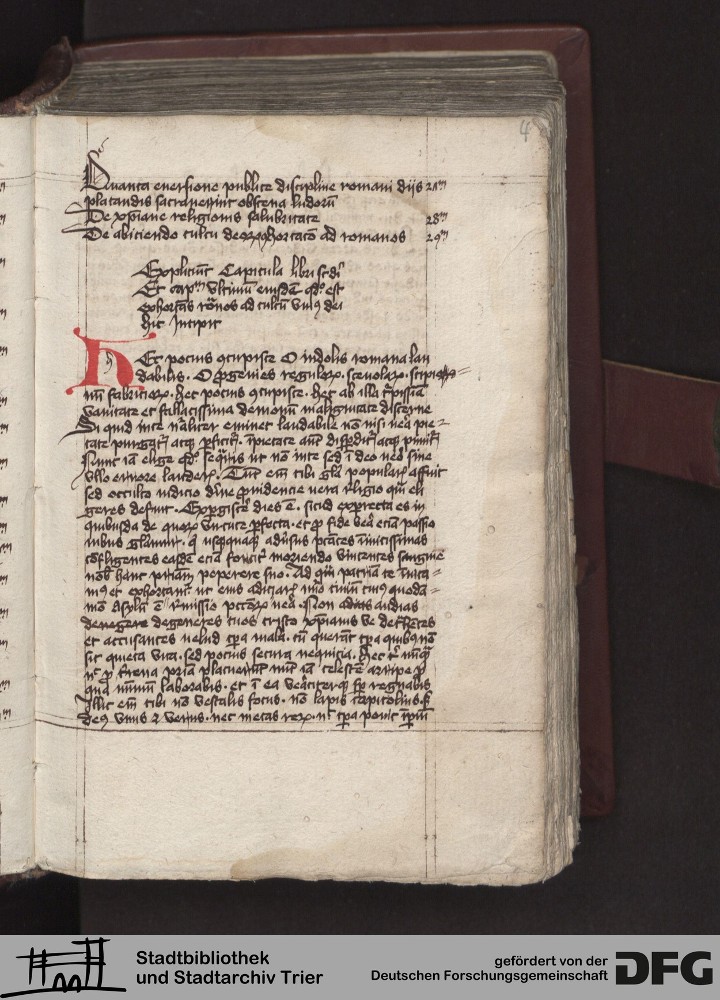 4
Quanta eversione publice discipline romani diis 27m
placandis sacraverint obscena ludorū
De xpiane religionis salubritate 28m
De abiciendo cultu deoꝝ exhortacō ad romanos 29m
Expliciūt Capitula libri scdi
Et capm ultimū eiusdē qd est
exhortās roanos ad cultū unius dei
hic Incipit
Hec pocius ꝯcupisce O indolis romana lau
dabilis. O ꝓgenies reguloꝝ. scevolaꝝ. scipio
nū fabricioꝝ. hec pocius ꝯcupisce. hec ab illa
vanitate et fallacissima demonū malignitate discerne
Si quid in te nāliter eminet laudabile nō nisi vera pie
tate purgatr atq ꝑficitr. īpietate autē
Nunc iā elige qd seqris ut nō in te sed ī deo vero sine
ullo errore lauderis. Tunc em tibi glā popularis affuit
sed occulto iudicio divine ꝓvidencie vera religio quā eli
geres defuit. Expergiscere dies ē. sicud experrecta es in
quibusdā de quoꝝ virtute ꝑfecta. et ꝓ fide vera eciā passio
nibus gloriamur. qui usquequaq adversus ptātes īimicissimas
cōfligentes easdē eciā fortiter moriendo vincentes sanguine
nobis hanc priam peperere suo. Ad quā patriā te īvita
mus et exhortamur ut eius adiciaris numero civiū cuius quodā
mō Asylū ē remissio pctōꝝ vera. Non audias
degeneres tuos cristo xpianis ve detrahentes
et accusantes velud tpa mala. cū querāt tpa quibus nō
sit quieta vita. sed pocius secura nequicia. Hec tibi nunq
nec ꝓ terrena pria placuerunt nunc iā celestē arripe ꝓ
qua minimū laborabis. et ī ea veraciter semper regnabis
Illic em tibi nō vestalis focus. nō lapis capitolinus. s
deus unus et verus. nec metas rerū. nec tpa ponit
Stadtbibliothek
und Stadtarchiv Trier
gefördert von der
Deutschen Forschungsgemeinschaft
DFG